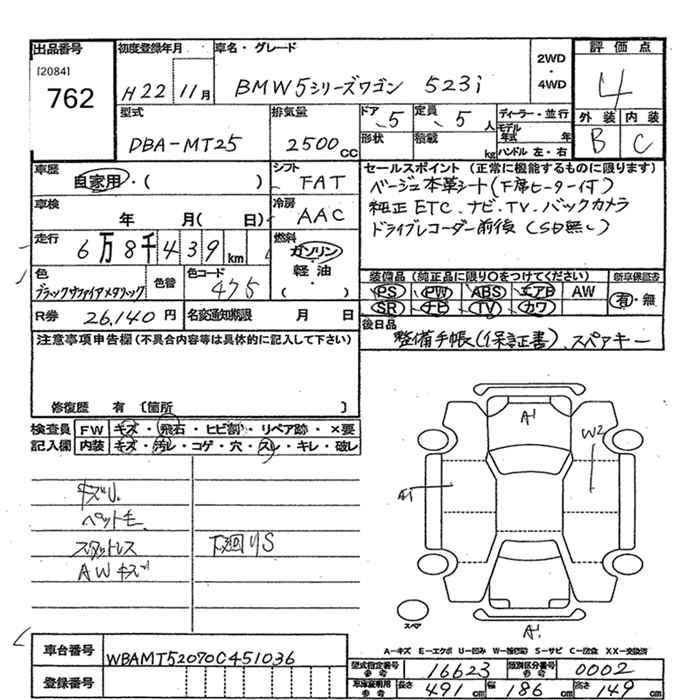 出品番号 初度登録年月 車名・グレード 2WD ・ 4WD 評価点
[2084] 762 H22 11月 BMW5シリーズワゴン 523i 4
型式 排気量 ドア 定員 ディーラー・並行 外装 内装
DBA-MT25 2500CC 5 5人 モデル年式 年 B C
形状 積載 kg ハンドル 左・右
車歴 シフト セールスポイント (正常に機能するものに限ります)
自家用・( ) FAT ベージュ本革シート(下席ヒーター付)
車検 冷房 純正ETC.ナビ.TV.バックカメラ
年 月( 日) AAC ドライブレコーダー前後(SD無し)
走行 6万8千439km 燃料 ガソリン・軽油・( )
色 色替 色コード 装備品 (純正品に限り○をつけてください) 新車保証書
ブラックサファイアメタリック 475 PS PW ABS エアB AW 有・無
SR ナビ TV カワ
R券 26,140円 名変通知期限 月 日 後日品
注意事項申告欄(不具合内容等は具体的に記入して下さい) 整備手帳(保証書)、スペアキー
修復歴 有 〔箇所 〕
検査員記入欄 FW キズ・飛石・ヒビ割・リペア跡・×要
内装 キズ・汚レ・コゲ・穴・スレ・キレ・破レ
A1
W2
A1
キズU
ペット毛
スタットレス 下廻りS
AWキズ
スペア
A1
A-キズ E-エクボ U-凹み W-補修跡 S-サビ C-腐食 XX-交換済
車台番号 WBAMT52070C451036
型式指定番号 16623 類別区分番号 0002
登録番号
車庫証明用参考 長さ 491cm 幅 186cm 高さ 149cm